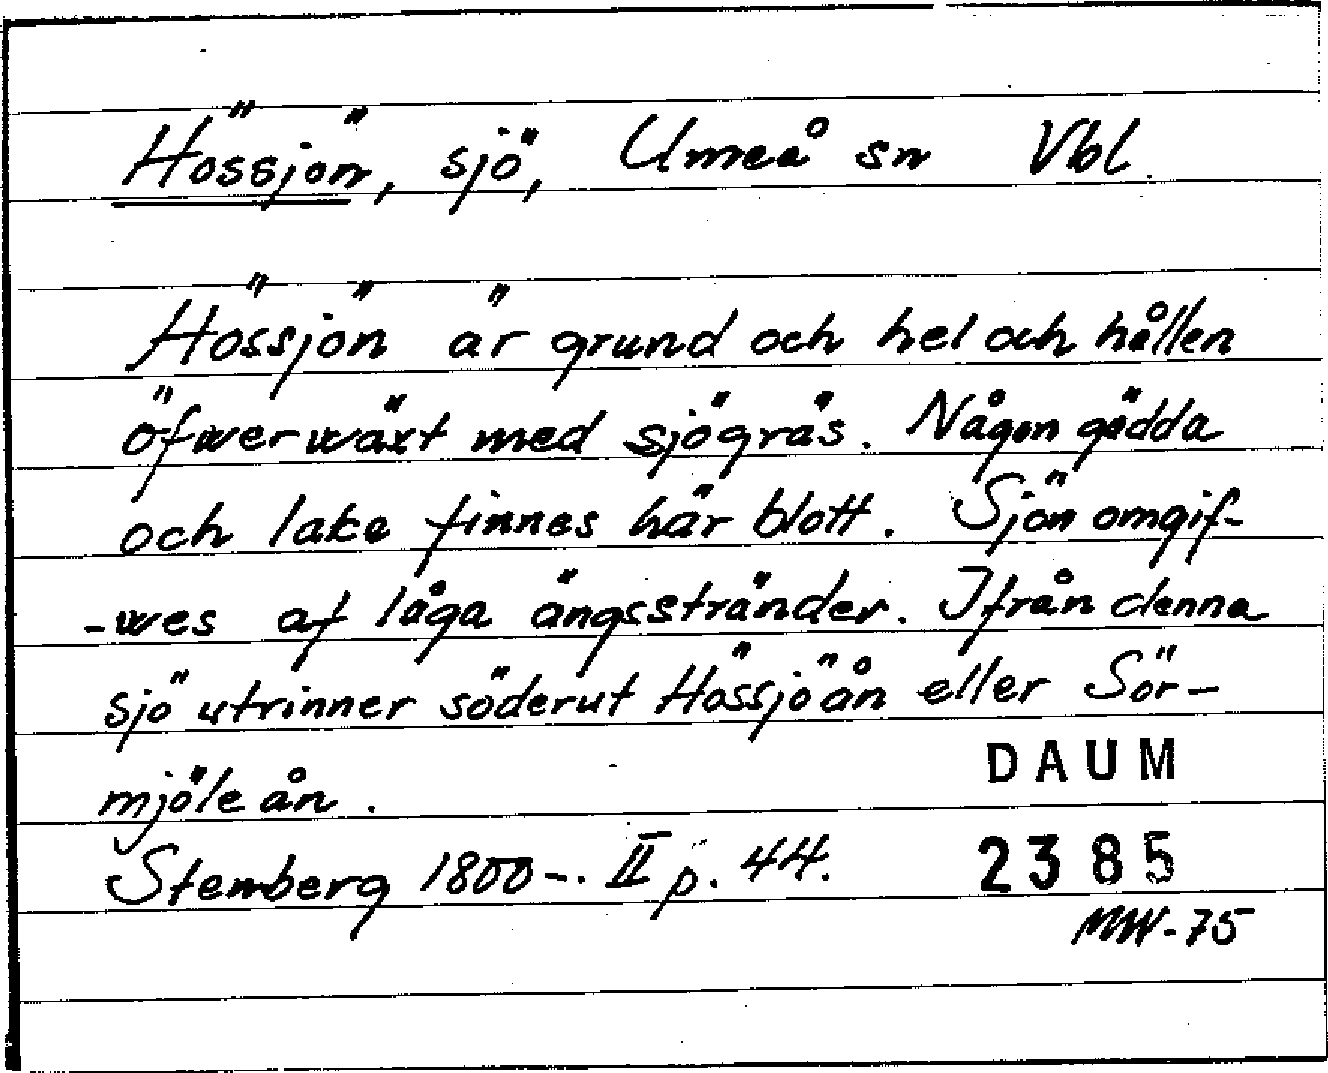 Hössjön, sjö, Umeå sn Vbl.
Hössjön är grund och hel och hållen
öfwerwäxt med sjögräs. Någon gädda
och lake finnes här blott. Sjön omgif-
-wes af låga ängsstränder. Ifrån denna
sjö utrinner söderut Hössjöån eller Sör-
mjöleån.
DAUM
Stenberg 1800-. II p. 44.
2385
MW-75